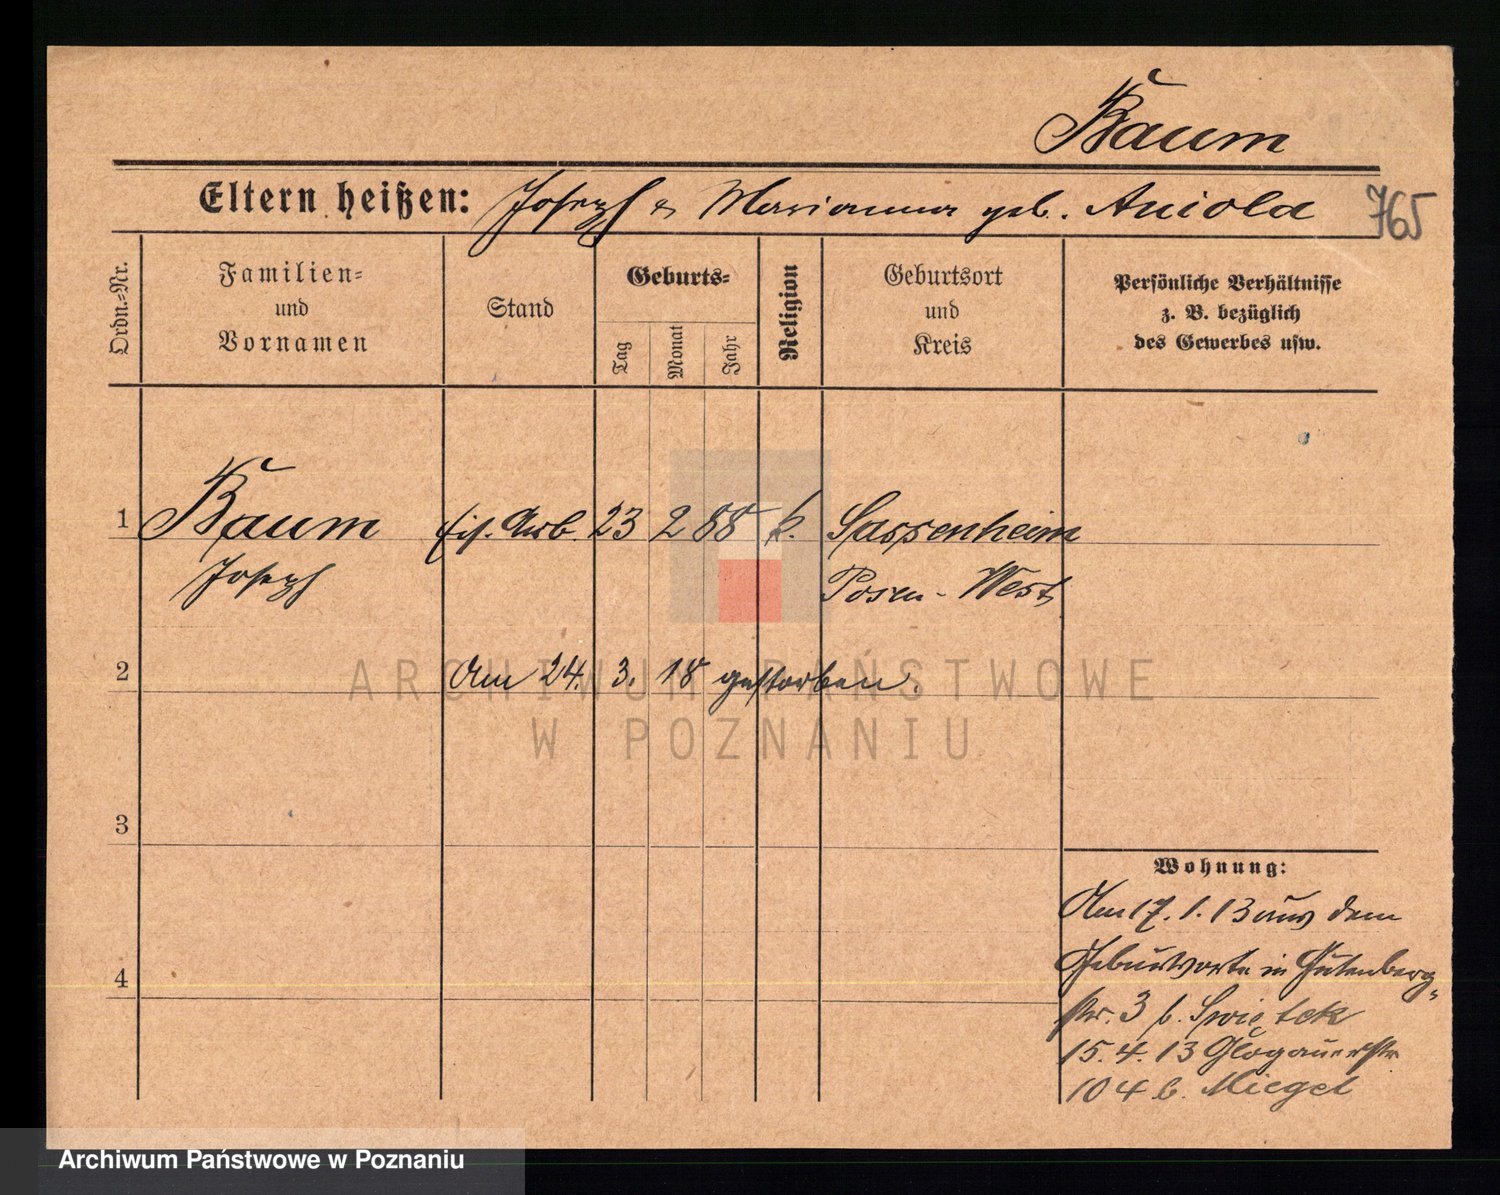 Baum
Eltern heißen: Joseph & Marianna geb. Aniola
765
Ordn.=Nr.
Familien=
und
Vornamen
Stand
Geburts=
Tag
Monat
Jahr
Religion
Geburtsort
und
Kreis
Persönliche Verhältnisse
z. B. bezüglich
des Gewerbes usw.
1 Baum Arb. 23 2 88 k. Sassenheim
Joseph Posen-West
2 Am 24. 3. 18 gestorben.
3
4
Wohnung:
Am 17. 1. 13 aus dem
Geburtsorte in Gutenberg=
str. 3 b. Swiętek
15. 4. 13 Glogauerstr
104 b. Miegel
ARCHIWUM PAŃSTWOWE
W POZNANIU
Archiwum Państwowe w Poznaniu